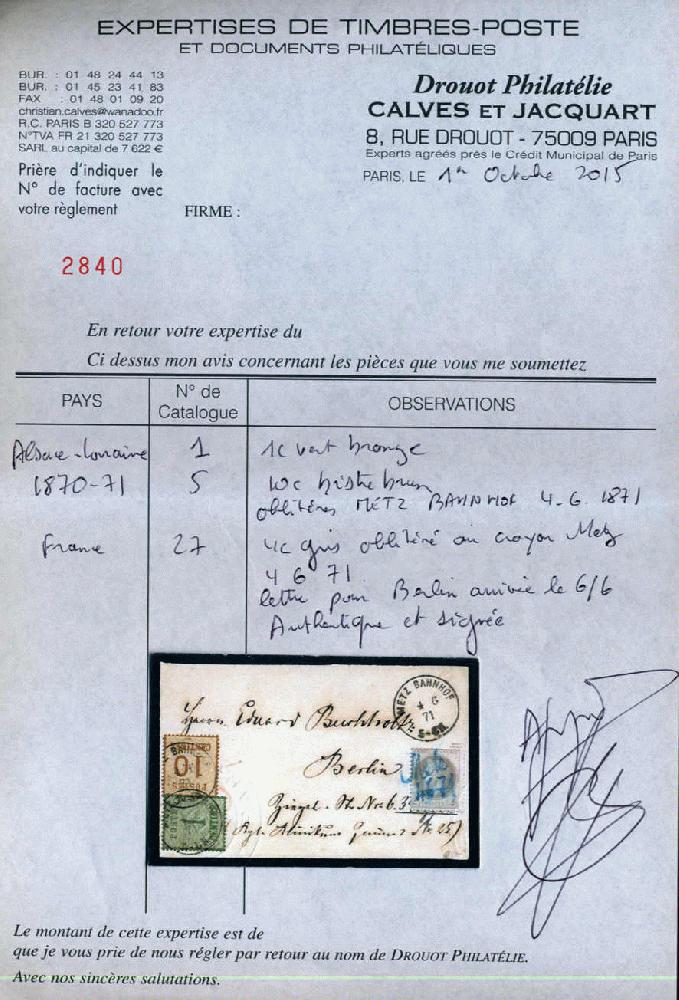 EXPERTISES DE TIMBRES-POSTE
ET DOCUMENTS PHILATÉLIQUES
BUR. : 01 48 24 44 13
BUR. : 01 45 23 41 83
FAX : 01 48 01 09 20
christian.calves@wanadoo.fr
R.C. PARIS B 320 527 773
N°TVA FR 21 320 527 773
SARL au capital de 7 622 €
Prière d'indiquer le
N° de facture avec
votre règlement
Drouot Philatélie
CALVES ET JACQUART
8, RUE DROUOT - 75009 PARIS
Experts agréés près le Crédit Municipal de Paris
PARIS, LE 1er Octobre 2015
FIRME :
2840
En retour votre expertise du
Ci dessus mon avis concernant les pièces que vous me soumettez
PAYS N° de Catalogue OBSERVATIONS
Alsace-Lorraine 1 1c vert bronze
1870-71 5 10c bistre brun
oblitérés METZ BAHNHOF 4.6.1871
France 27 4c gris oblitéré au crayon Metz
4 6 71
lettre pour Berlin arrivée le 6/6
Authentique et signée
METZ BAHNHOF
6
71
Herrn Eduard
Berlin
10
1
Le montant de cette expertise est de
que je vous prie de nous régler par retour au nom de DROUOT PHILATÉLIE.
Avec nos sincères salutations.